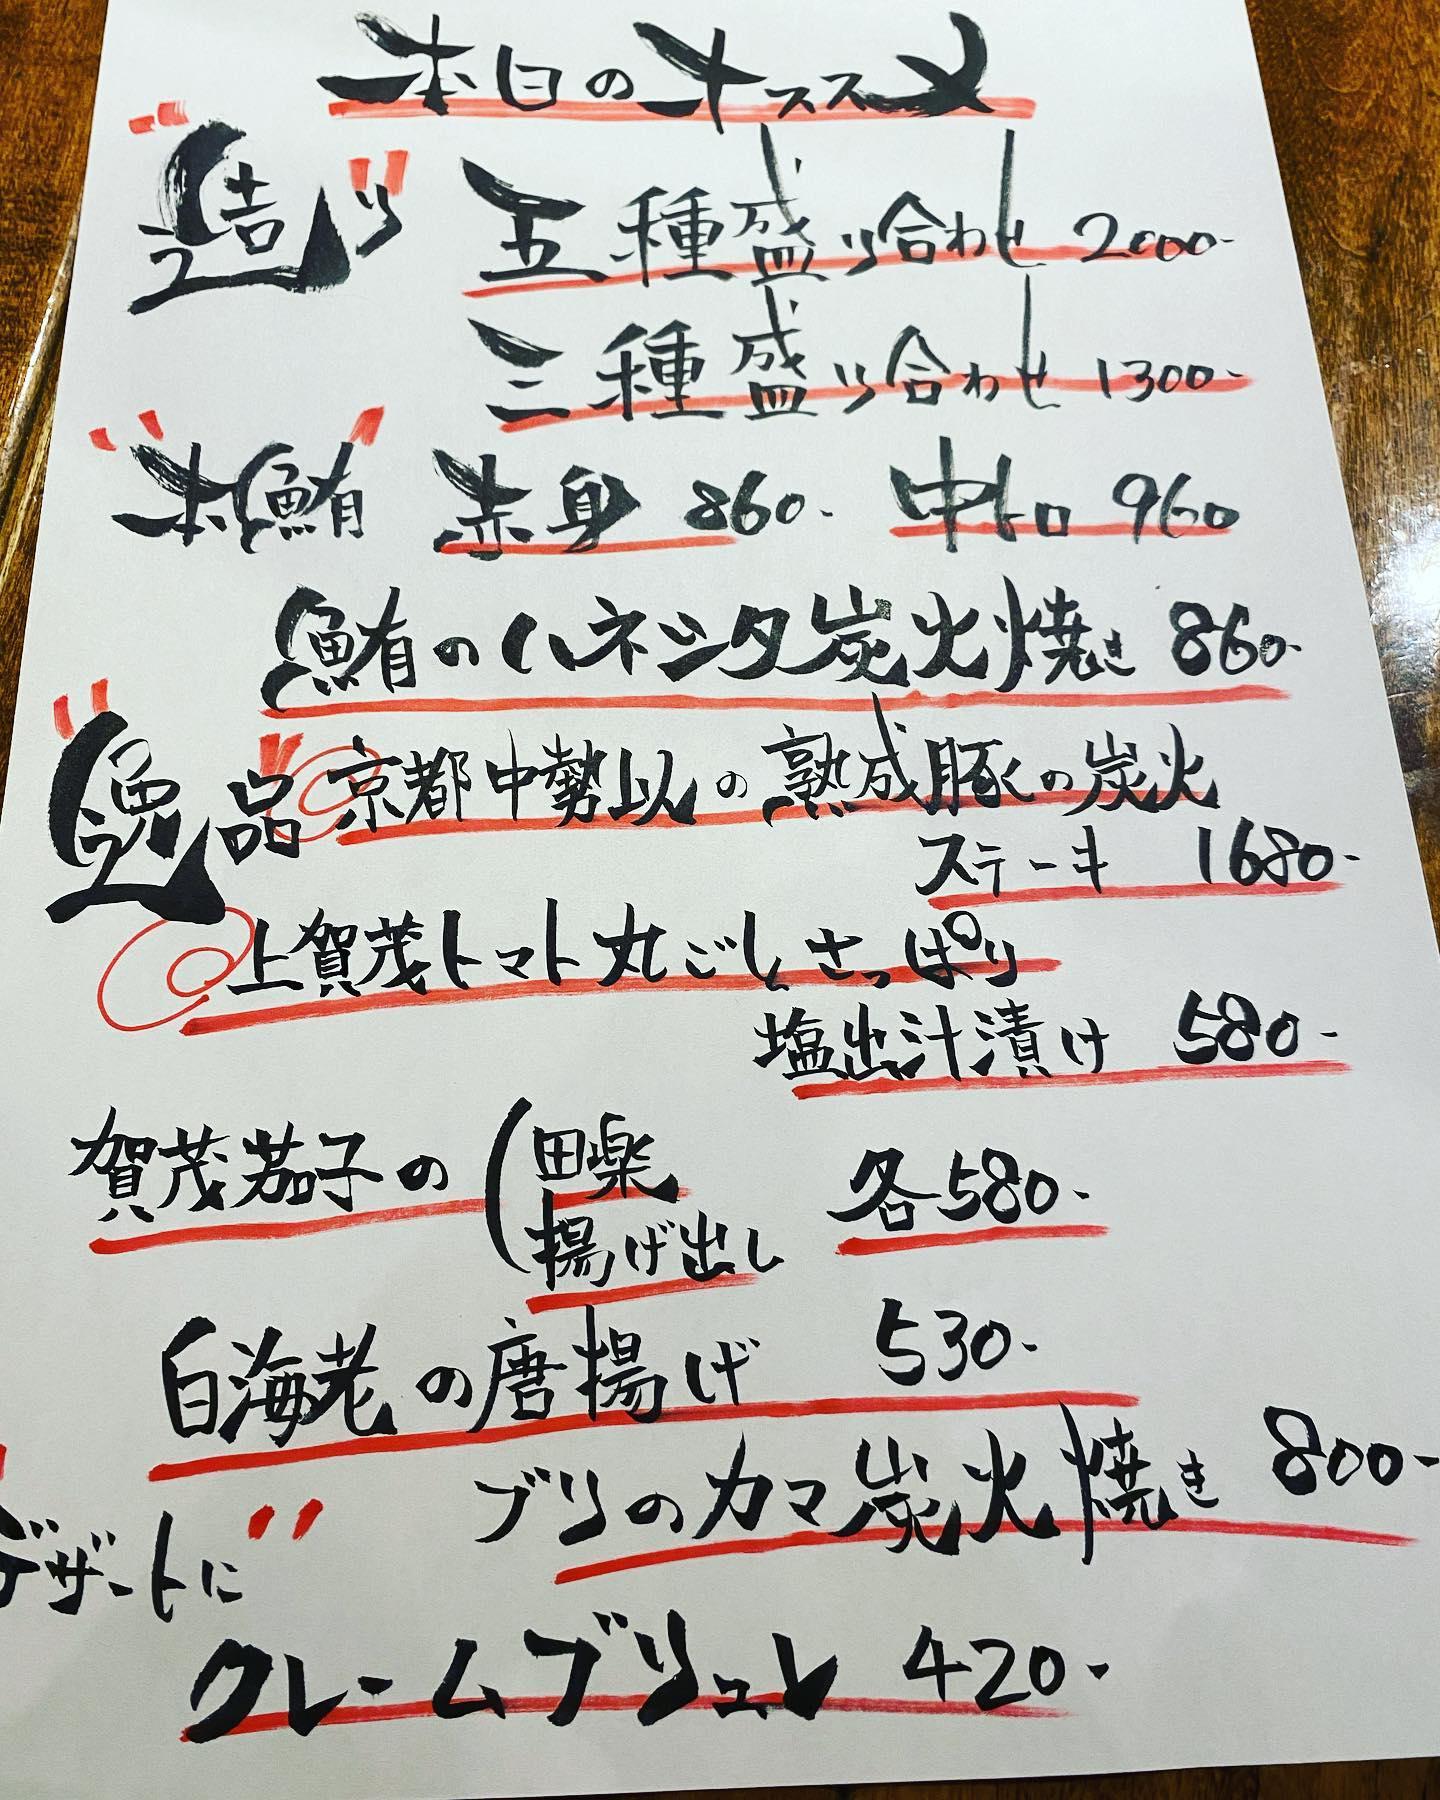 本日のオススメ
造り 五種盛り合わせ 2000-
三種盛り合わせ 1300-
本鮪 赤身 860- 中トロ 960
鮪のハネシタ炭火焼き 860-
逸品 京都中勢以の熟成豚の炭火
ステーキ 1680-
上賀茂トマト丸ごとさっぱり
塩出汁漬け 580-
賀茂茄子の(田楽
揚げ出し 各580-
白海老の唐揚げ 530-
ブリのカマ炭火焼き 800-
デザートに
クレームブリュレ 420-